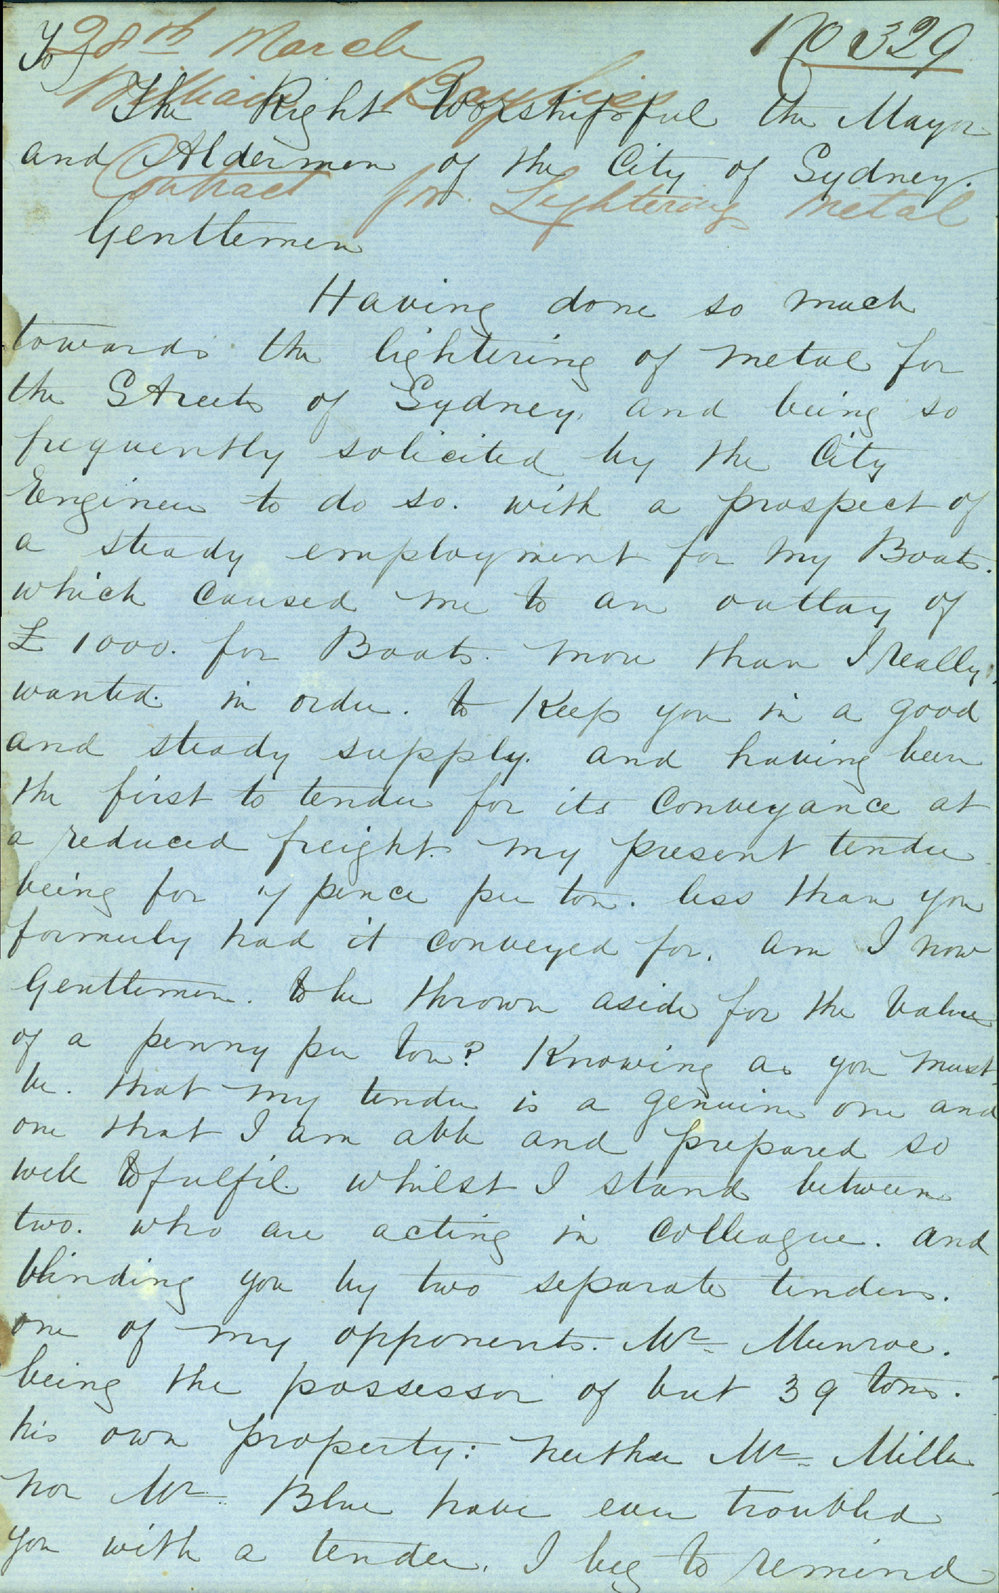 28th March
No 329
William Bayliss
Contract for Lightering Metal
To
The Right Worshipful the Mayor
and Aldermen of the City of Sydney.
Gentlemen
Having done so much
towards the lightering of metal for
the Streets of Sydney, and being so
frequently solicited by the City
Engineer to do so. with a prospect of
a steady employment for my Boats.
which caused me to an outlay of
£1000. for Boats. more than I really
wanted. in order. to Keep you in a good
and steady supply. and having been
the first to tender for its Conveyance at
a reduced freight. my present tender
being for pence per ton. less than you
formerly had it conveyed for. am I now
Gentlemen. to be thrown aside for the Value
of a penny per ton? Knowing as you must
be. that my tender is a genuine one and
one that I am able and prepared so
well to fulfil. whilst I stand between
two. who are acting in Colleague. and
blinding you by two separate tenders.
one of my opponents. Mr. Munroe.
being the possessor of but 39 tons.
his own property: neither Mr. Miller
nor Mr. Blue have ever troubled
you with a tender. I beg to remind